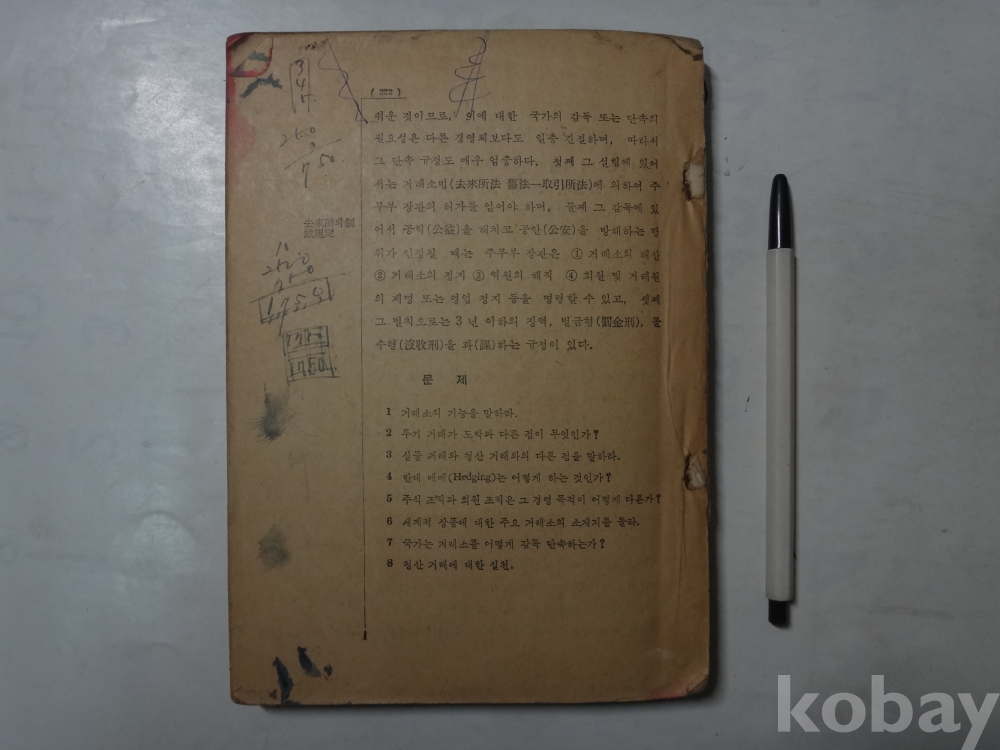 ( 222 )
쉬운 것이므로, 이에 대한 국가의 감독 또는 단속의
필요성은 다른 경영체보다도 일층 긴절하며, 따라서
그 단속 규정도 매우 엄중하다, 첫째 그 설립에 있어
서는 거래소법(去來所法 舊法—取引所法)에 의하여 주
무부 장관의 허가를 얻어야 하며, 둘째 그 감독에 있
어서 공익(公益)을 해치고 공안(公安)을 방해하는 행
위가 인정될 때는 주무부 장관은 ① 거래소의 해산
② 거래소의 정지 ③ 역원의 해직 ④ 회원 및 거래원
의 제명 또는 영업 정지 등을 명령할 수 있고, 셋째
그 벌칙으로는 3 년 이하의 징역, 벌금형(罰金刑), 몰
수형(沒收刑)을 과(課)하는 규정이 있다.
문 제
1 거래소의 기능을 말하라.
2 투기 거래가 도박과 다른 점이 무엇인가?
3 실물 거래와 청산 거래와의 다른 점을 말하라.
4 반대 매매(Hedging)는 어떻게 하는 것인가?
5 주식 조직과 회원 조직은 그 경영 목적이 어떻게 다른가?
6 세계적 상품에 대한 주요 거래소의 소재지를 들라.
7 국가는 거래소를 어떻게 감독 단속하는가?
8 청산 거래에 대한 실천.
250
3
7 50
kobay